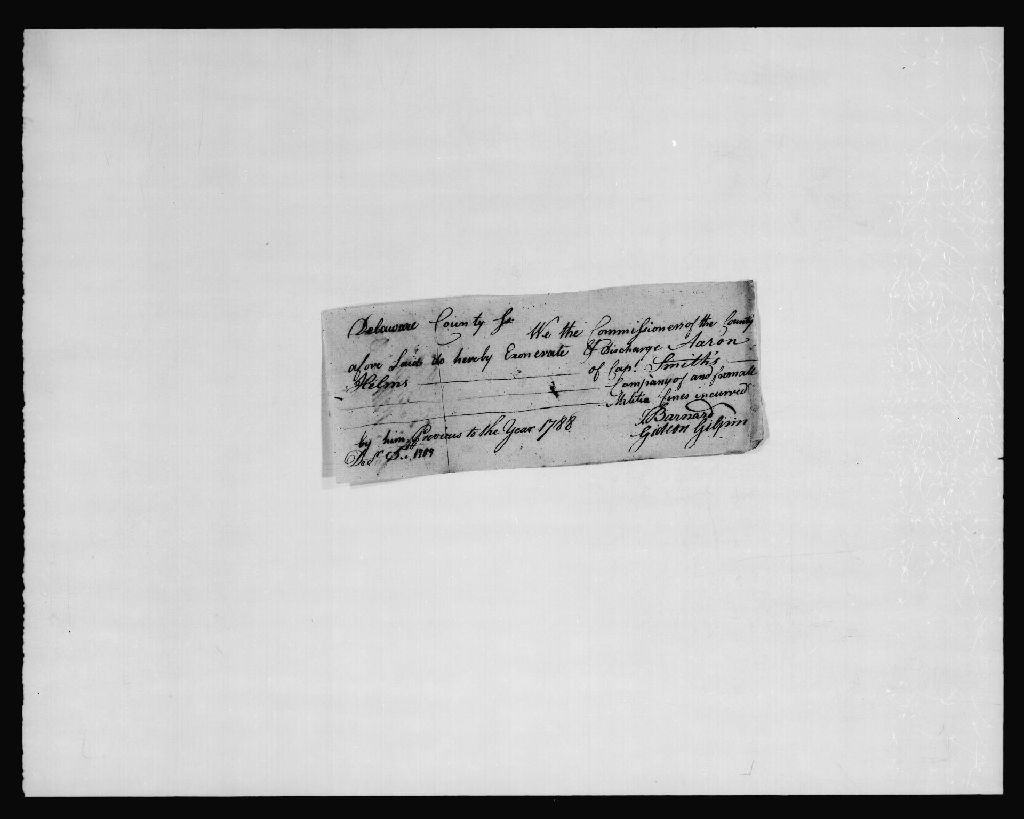 Delaware County Ss.
We the Commissioners of the County
afore Said do hereby Exonerate & Discharge Aaron
Helms of Capt. Smith's
Company of and from all
Militia fines incurred
by him Previous to the Year 1788
J. Barnard
Gideon Gilpin